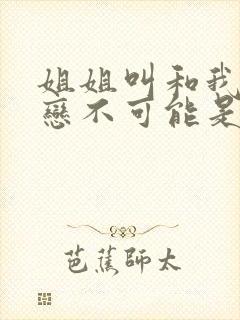 姐姐叫和我
戀不可能是
芭蕉師太